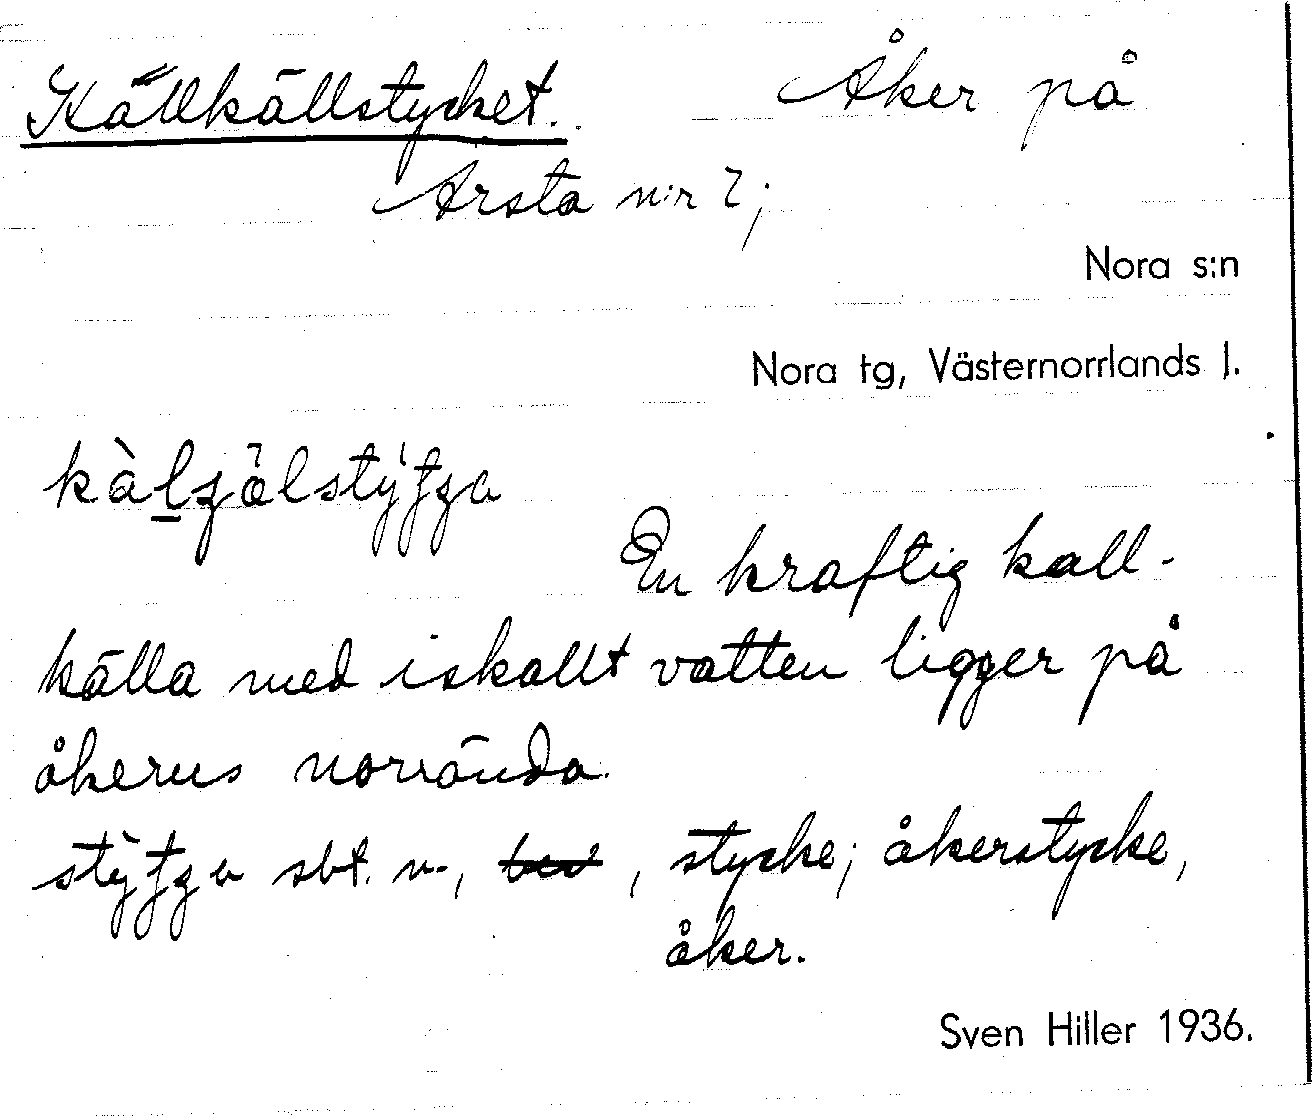 Kallkällstycket. Åker på
Arsta n:r 2;
Nora s:n
Nora tg, Västernorrlands l.
En kraftig kall-
källa med iskallt vatten ligger på
åkerns norrända.
sbt. n., stycke; åkerstycke,
åker.
Sven Hiller 1936.